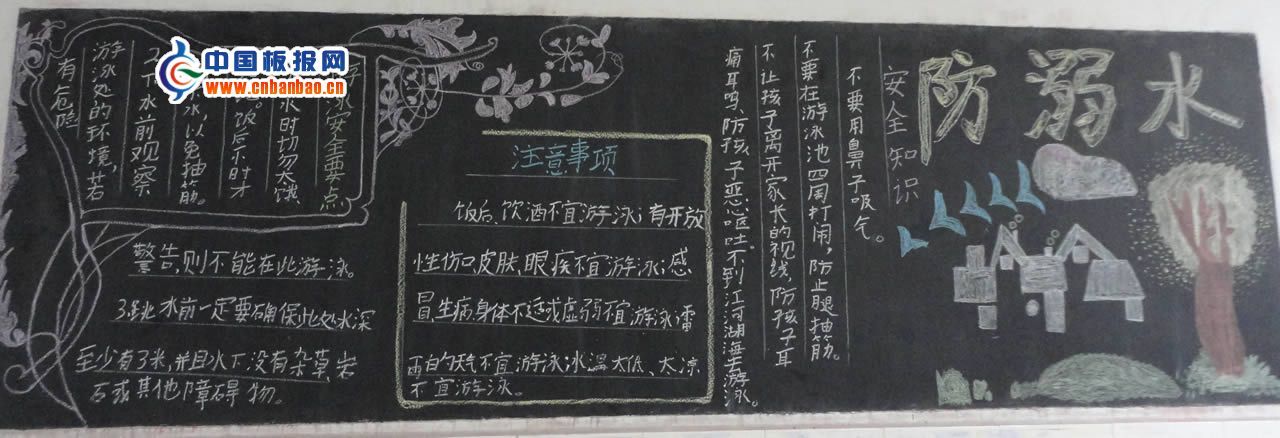 防溺水
安全知识
不要用鼻子吸气。
不要在游泳池四周打闹，防止腿抽筋。
不让孩子离开家长的视线，防孩子耳
痛耳鸣、防孩子恶心呕吐不到江河湖海去游泳。
注意事项
饭后、饮酒不宜游泳；有开放
性伤口、皮肤、眼疾不宜游泳；感
冒、生病、身体不适或虚弱不宜游泳；雷
雨的天气不宜游泳；水温太低、太凉
不宜游泳。
安全要点
水时切勿太饿、
饭后不时才
水，以免抽筋。
下水前观察
游泳处的环境，若
有危险
警告，则不能在此游泳。
3.跳水前一定要确保此处水深
至少有3米，并且水下没有杂草、岩
石或其他障碍物。
中国板报网
www.cnbanbao.cn